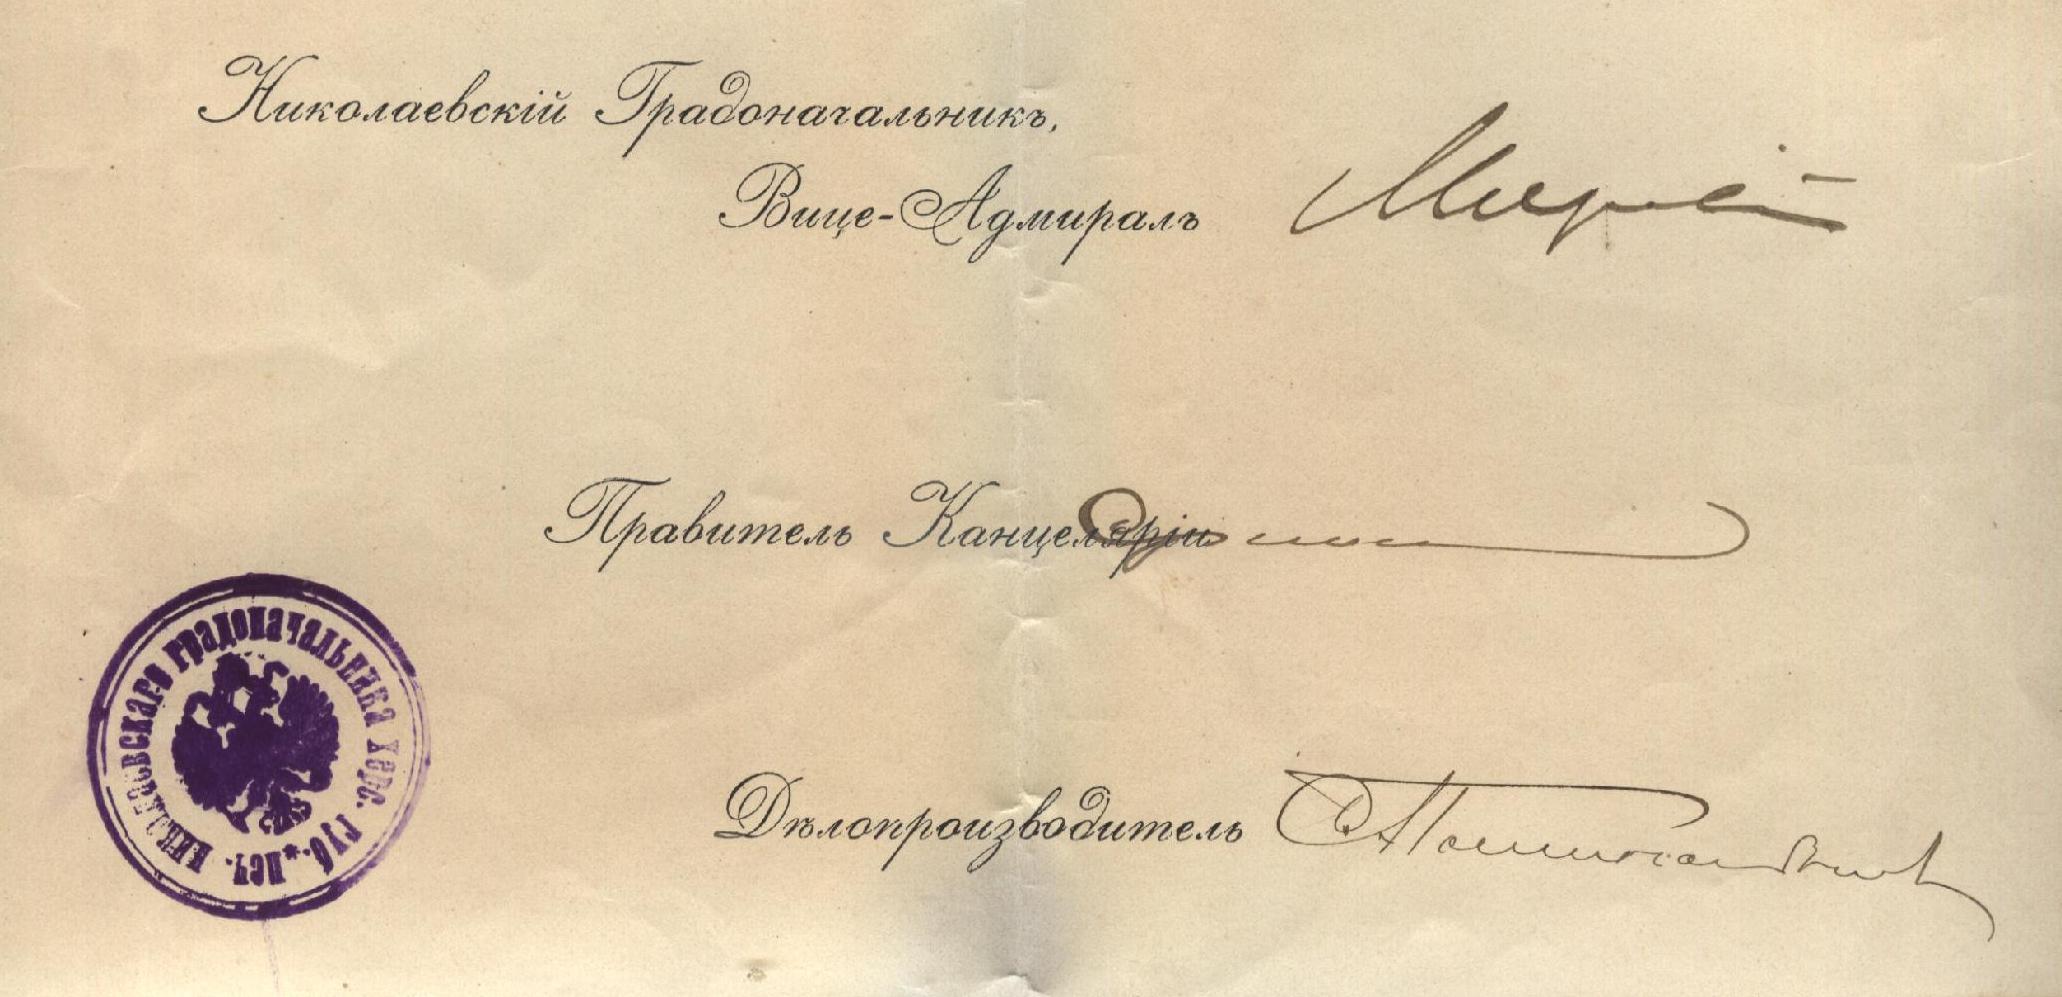 Николаевскій Градоначальникъ,
Вице-Адмиралъ
Правитель Канцеляріи
Дѣлопроизводитель
печ. николаевскаго градоначальника херс. губ. *